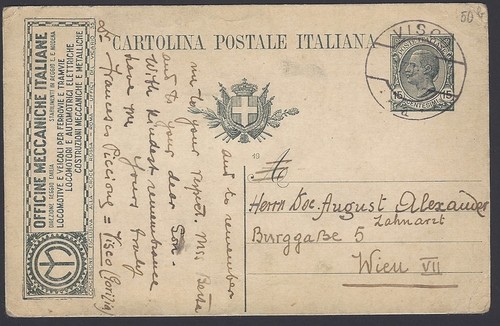 50
CARTOLINA POSTALE ITALIANA
VISCO
15
15
OFFICINE MECCANICHE ITALIANE
DIREZIONE: REGGIO EMILIA STABILIMENTI IN REGGIO E. E MODENA
LOCOMOTIVE E VEICOLI PER FERROVIE E TRAMVIE
LOCOMOTORI E AUTOMOTRICI ELETTRICHE
COSTRUZIONI MECCANICHE E METALLICHE
and to remember
me to your respect. Mrs. Berta
and to your dear Son.
With kindest remembrance
have me yours truly
Dr. Francesco Piccione = Visco (Gorizia)
19
Herrn Doc. August Alexander
Zahnarzt
Burggaße 5
Wien VII